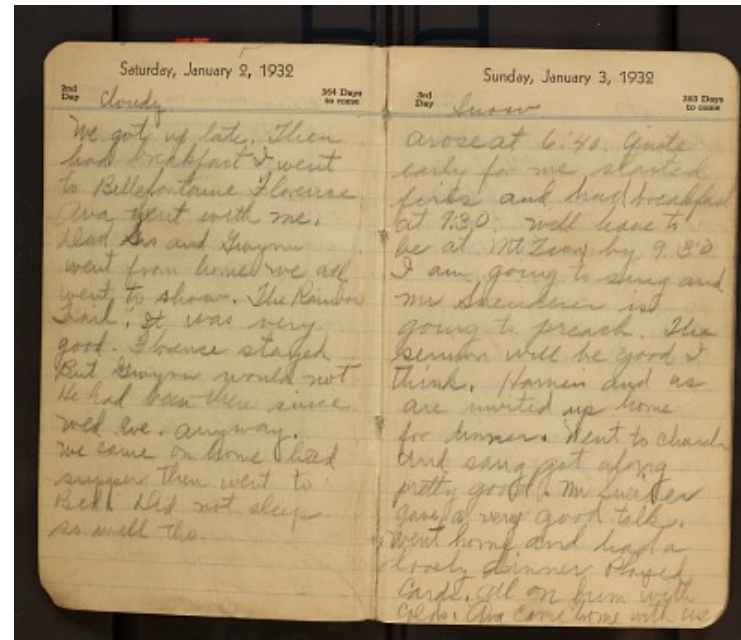 Saturday, January 2, 1932
2nd
Day
364 Days
to come
Cloudy
We got up late. Then
had breakfast I went
to Bellefontaine Florence
Ava went with me.
Dad Sis and Gwynn
went from home we all
went to show. The Rainbow
Trail". It was very
good. Florence stayed
But Gwynn would not
He had been there since
Wed eve. anyway.
We came on home had
supper then went to
Bed. Did not sleep
so well tho.
Sunday, January 3, 1932
3rd
Day
363 Days
to come
Snow
arose at 6:40. Quite
early for me started
fires and had breakfast
at 7:30. Will have to
be at Mt Zion by 9:30
I am going to sing and
Mr is
going to preach. The
sermon will be good I
think. and us
are invited up home
for dinner. Went to church
and sang got along
pretty good. Mr
gave a very good talk.
went home and had a
lovely dinner Played
Cards. all on bum with
colds. Ava came home with us